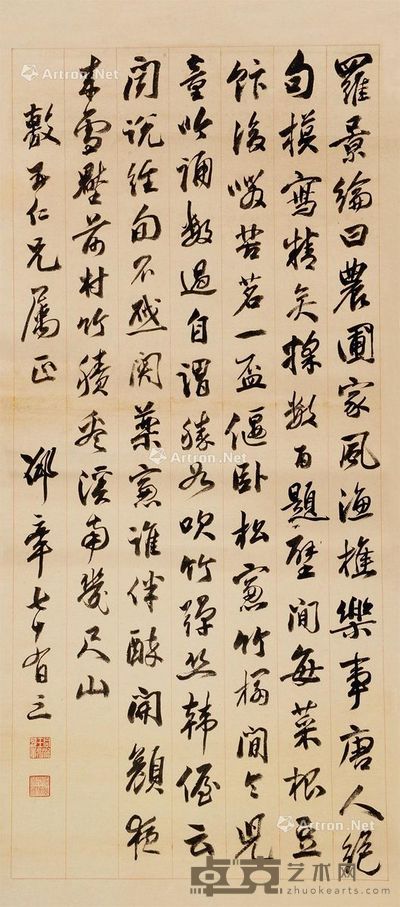 羅景綸曰農圃家風漁樵樂事唐人絕
句模寫精矣採數百題壁間每菜根豆
飯後啜苦茗一盃偃卧松窻竹榻間令兒
童吟誦數過自謂勝如吹竹彈絲韓偓云
聞說經旬不啟關藥窻誰伴醉開顏夜
來雪壓前村竹賸看溪南幾尺山
敷仁兄屬正
邵章七十有三
Artron.Net
Artron.Net
Artron.Net
Artron.Net
Artron.Net
卓克艺术网
zhuokearts.com